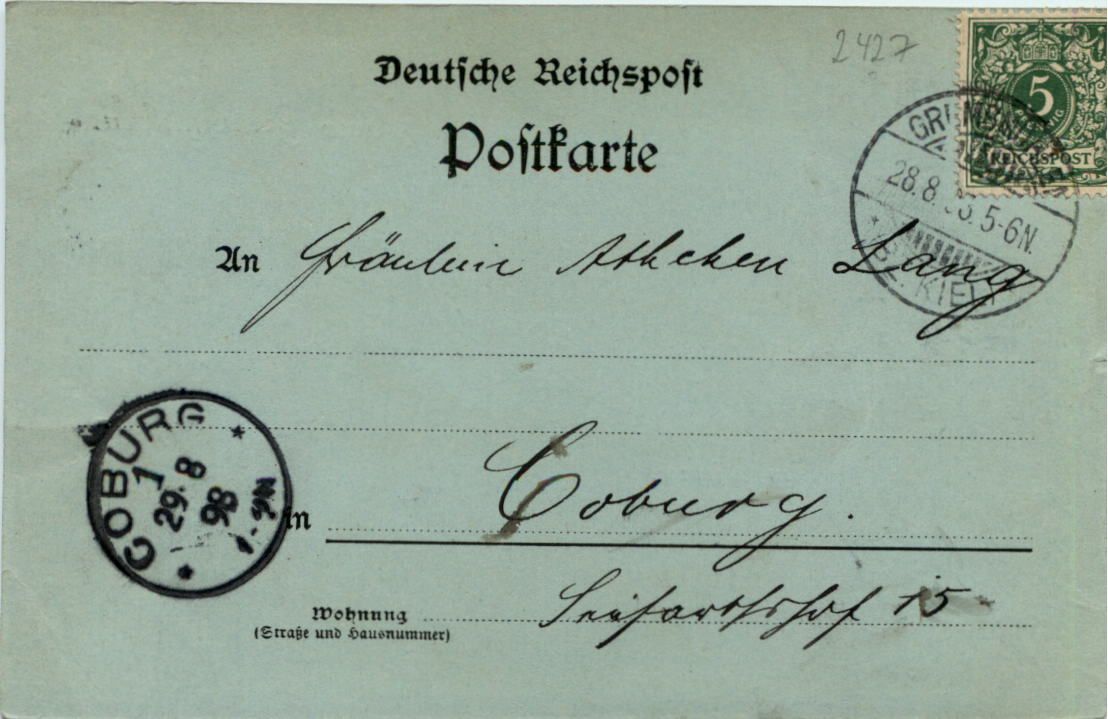 2427
Deutsche Reichspost
Postkarte
5
REICHSPOST
28.8. 5-6N.
BZ. KIEL
An Fräulein Lang
COBURG
1
29.8
98
in Coburg.
Wohnung
(Straße und Hausnummer)
15